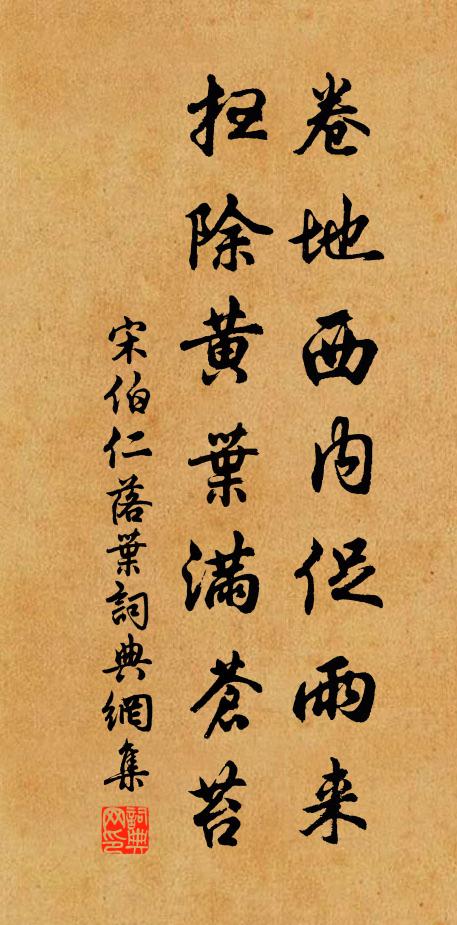 卷地西内促雨来
扫除黄葉满蒼苔
宋伯仁落葉詞典網集
詞典網印